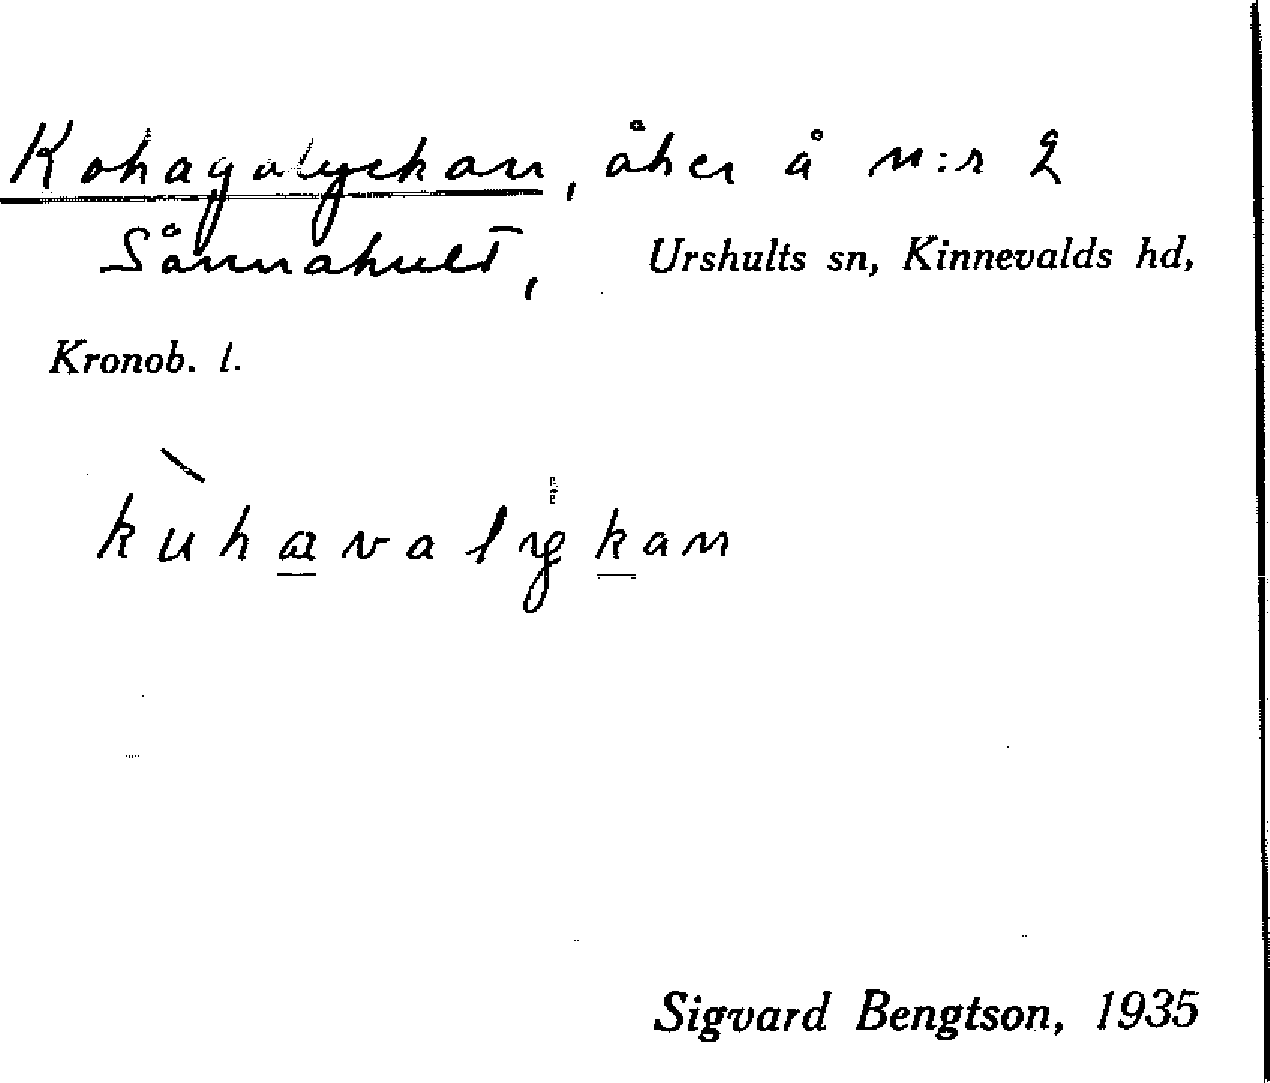 Kohagalyckan, åker å n:r 2
Sånnahult, Urshults sn, Kinnevalds hd,
Kronob. l.
kùhavalykan
Sigvard Bengtson, 1935